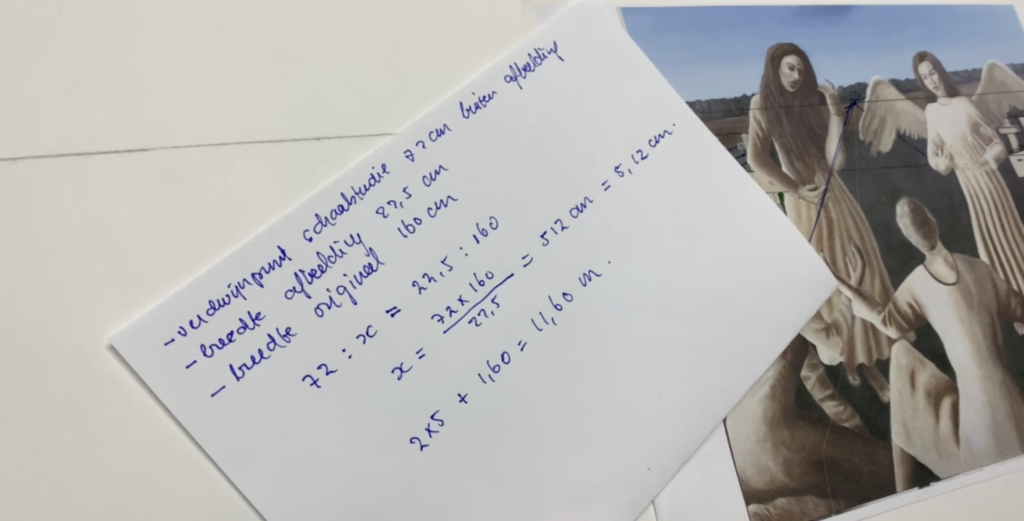 - verdwijnpunt schaalstudie 72 cm buiten afbeelding
- breedte afbeelding 22,5 cm
- breedte origineel 160 cm
72 : x = 22,5 : 160
x = 72 x 160 / 22,5 = 512 cm = 5,12 cm.
2 x 5 + 1,60 = 11,60 m.